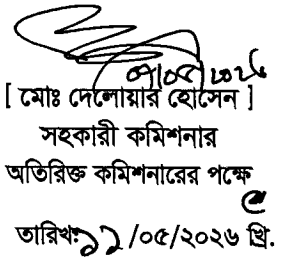 [ মোঃ দেলোয়ার হোসেন ]
সহকারী কমিশনার
অতিরিক্ত কমিশনারের পক্ষে
তারিখঃ ১১/০৫/২০২৬ খ্রি.